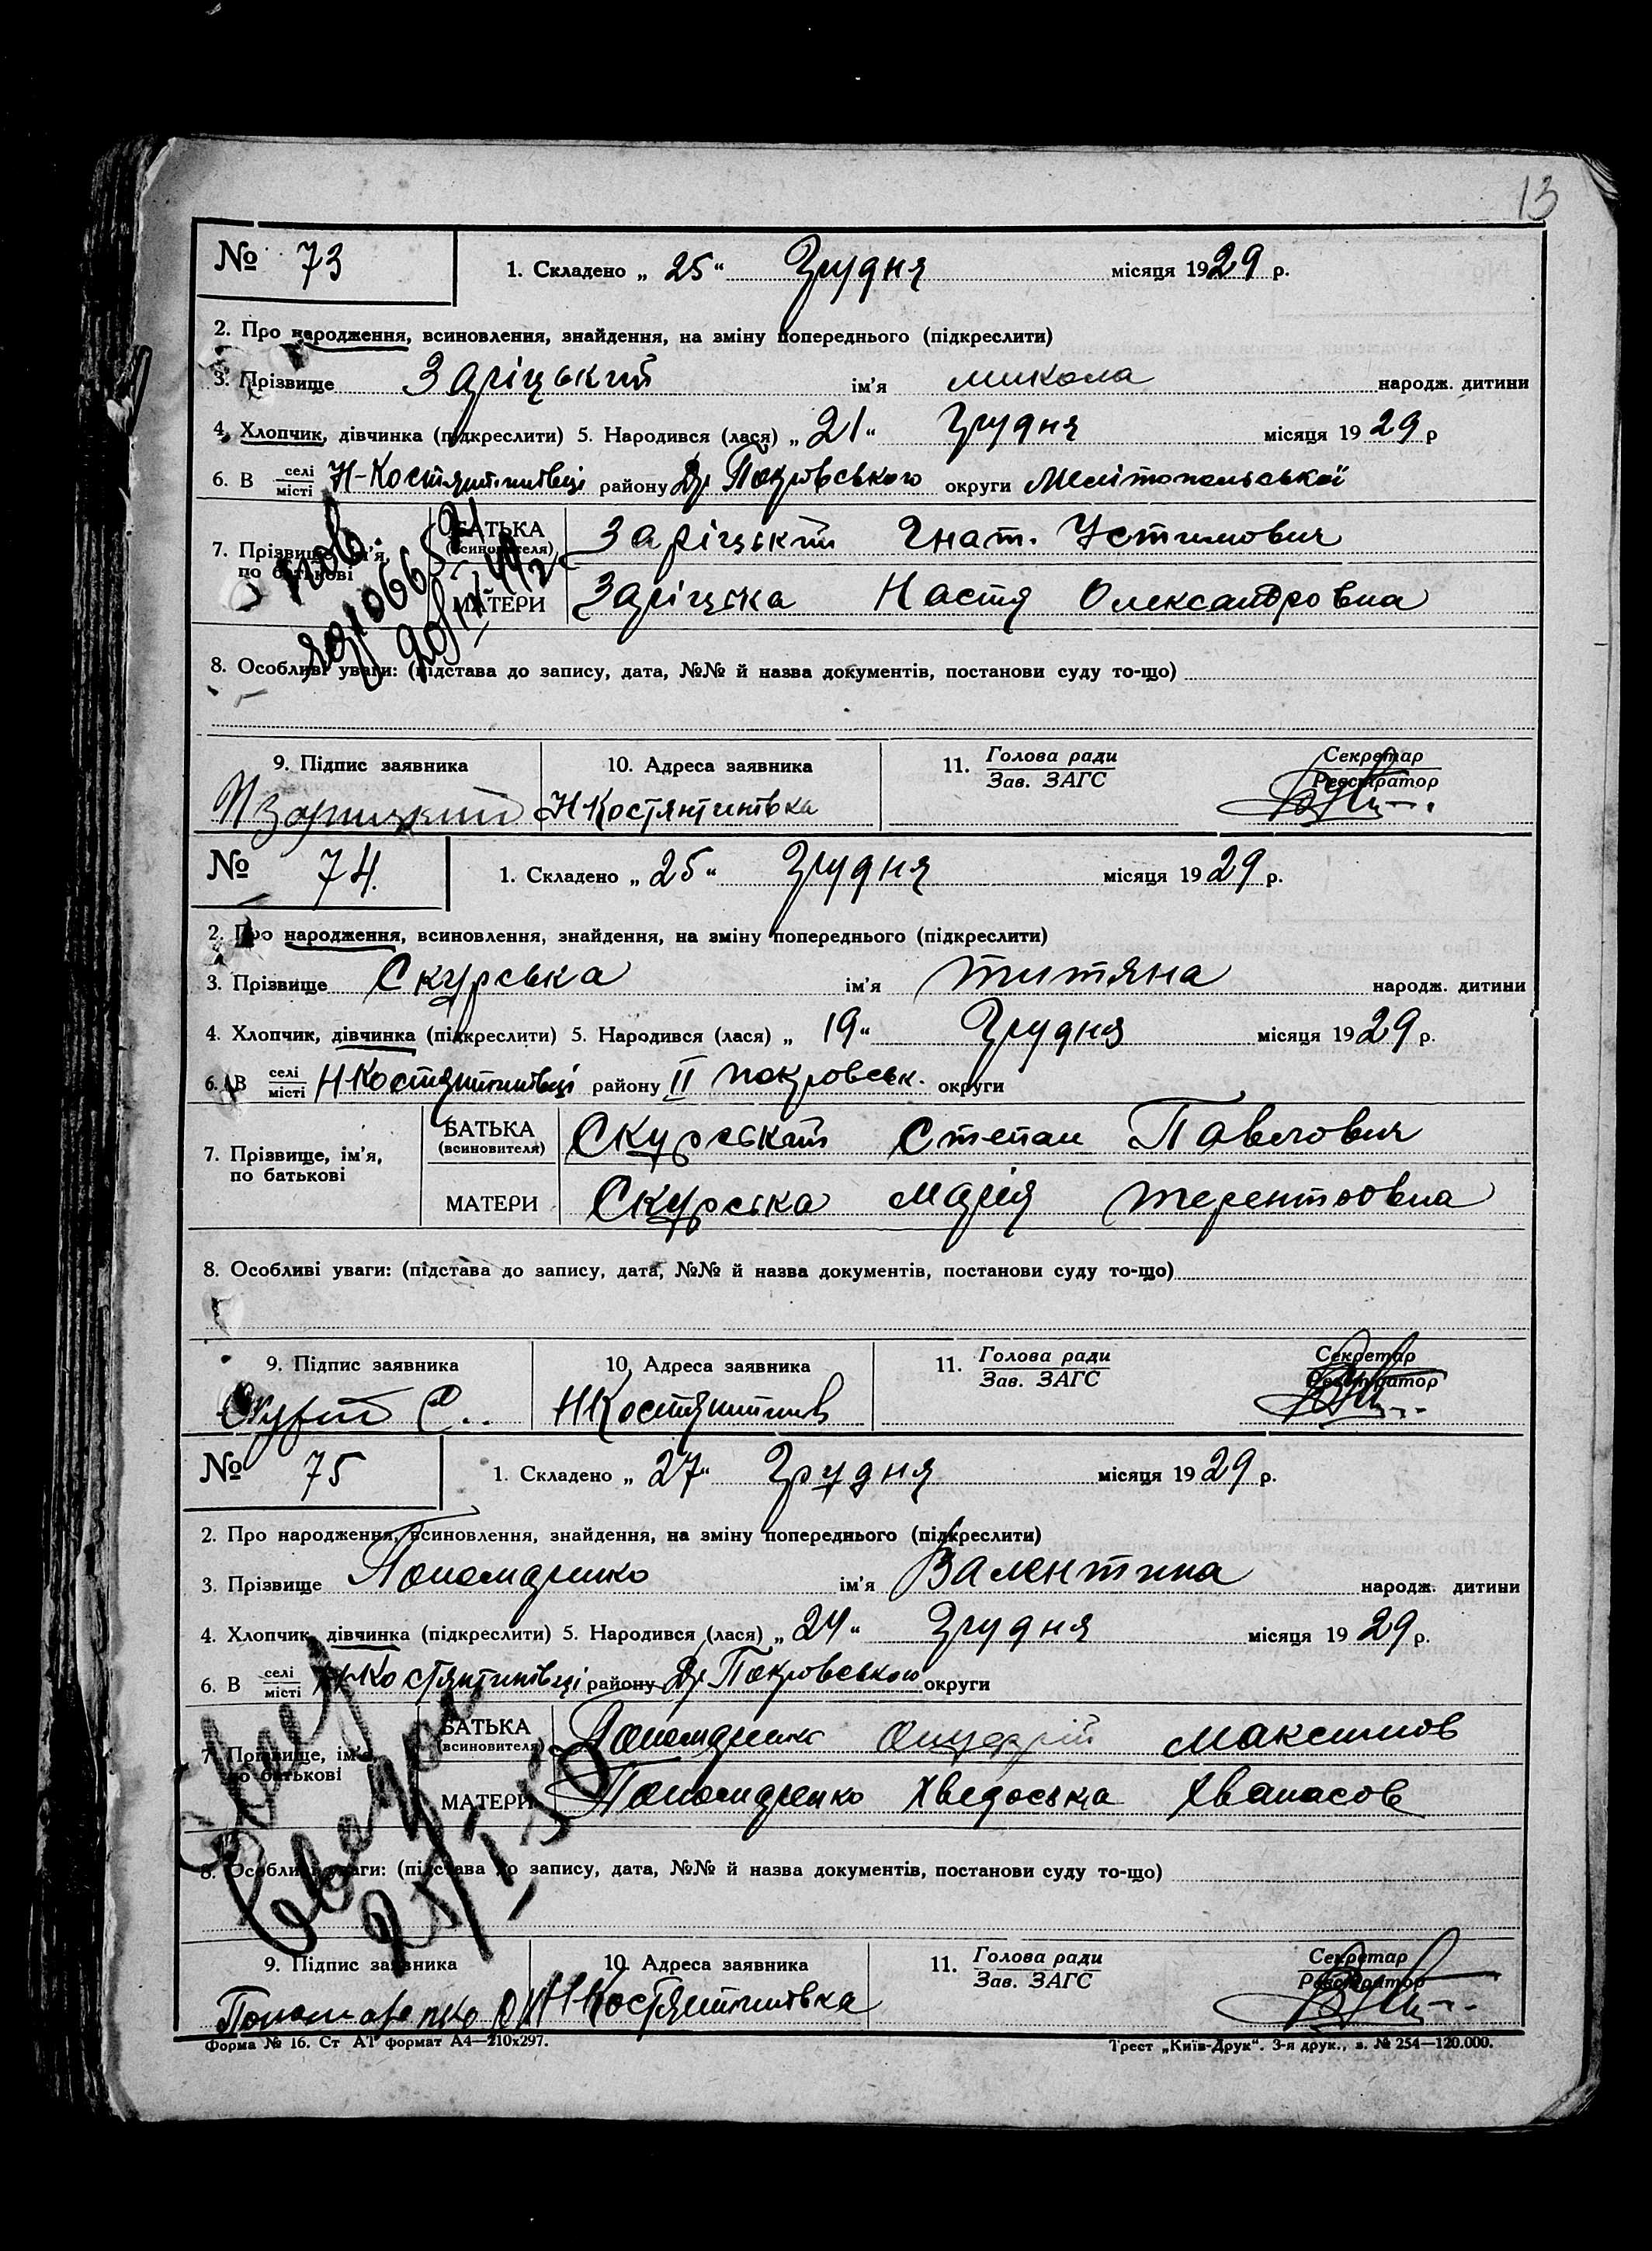 13
№ 73
1. Складено „ 25 “ Грудня місяця 1929 р.
2. Про народження, всиновлення, знайдення, на зміну попереднього (підкреслити)
3. Прізвище Заріцький ім'я Микола народж. дитини
4. Хлопчик, дівчинка (підкреслити) 5. Народився (лася) „ 21 “ Грудня місяця 1929 р
6. В селі/місті Н-Костянтинівці району Др. Покровського округи Мелітопольської
7. Прізвище, ім'я, по батькові
БАТЬКА (всиновителя) Заріцький Гнат. Устимович
МАТЕРИ Заріцька Настя Олександровна
8. Особливі уваги: (підстава до запису, дата, №№ й назва документів, постанови суду то-що)
9. Підпис заявника 10. Адреса заявника 11. Голова ради / Зав. ЗАГС Секретар / Реєстратор
Н Костянтинівка
№ 74.
1. Складено „ 25 “ Грудня місяця 1929 р.
2. Про народження, всиновлення, знайдення, на зміну попереднього (підкреслити)
3. Прізвище Скурська ім'я Титяна народж. дитини
4. Хлопчик, дівчинка (підкреслити) 5. Народився (лася) „ 19 “ Грудня місяця 1929 р.
6. В селі/місті Н Костянтинівці району II Покровськ. округи
7. Прізвище, ім'я, по батькові
БАТЬКА (всиновителя) Скурський Степан Павлович
МАТЕРИ Скурська Марія Терентьовна
8. Особливі уваги: (підстава до запису, дата, №№ й назва документів, постанови суду то-що)
9. Підпис заявника 10. Адреса заявника 11. Голова ради / Зав. ЗАГС Секретар / Реєстратор
Н Костянтинів
№ 75
1. Складено „ 27 “ Грудня місяця 1929 р.
2. Про народження, всиновлення, знайдення, на зміну попереднього (підкреслити)
3. Прізвище Пономаренко ім'я Валентина народж. дитини
4. Хлопчик, дівчинка (підкреслити) 5. Народився (лася) „ 24 “ Грудня місяця 1929 р.
6. В селі/місті Н-Костянтинівці району Др Покровського округи
7. Прізвище, ім'я, по батькові
БАТЬКА (всиновителя) Пономаренко Максимов
МАТЕРИ Пономаренко Хведоська Хванасов
8. Особливі уваги: (підстава до запису, дата, №№ й назва документів, постанови суду то-що)
9. Підпис заявника 10. Адреса заявника 11. Голова ради / Зав. ЗАГС Секретар / Реєстратор
Пономаренко Н-Костянтинівка
Форма № 16. Ст А1 формат А4—210х297. Трест „Київ-Друк“. 3-я друк., з. № 254—120.000.